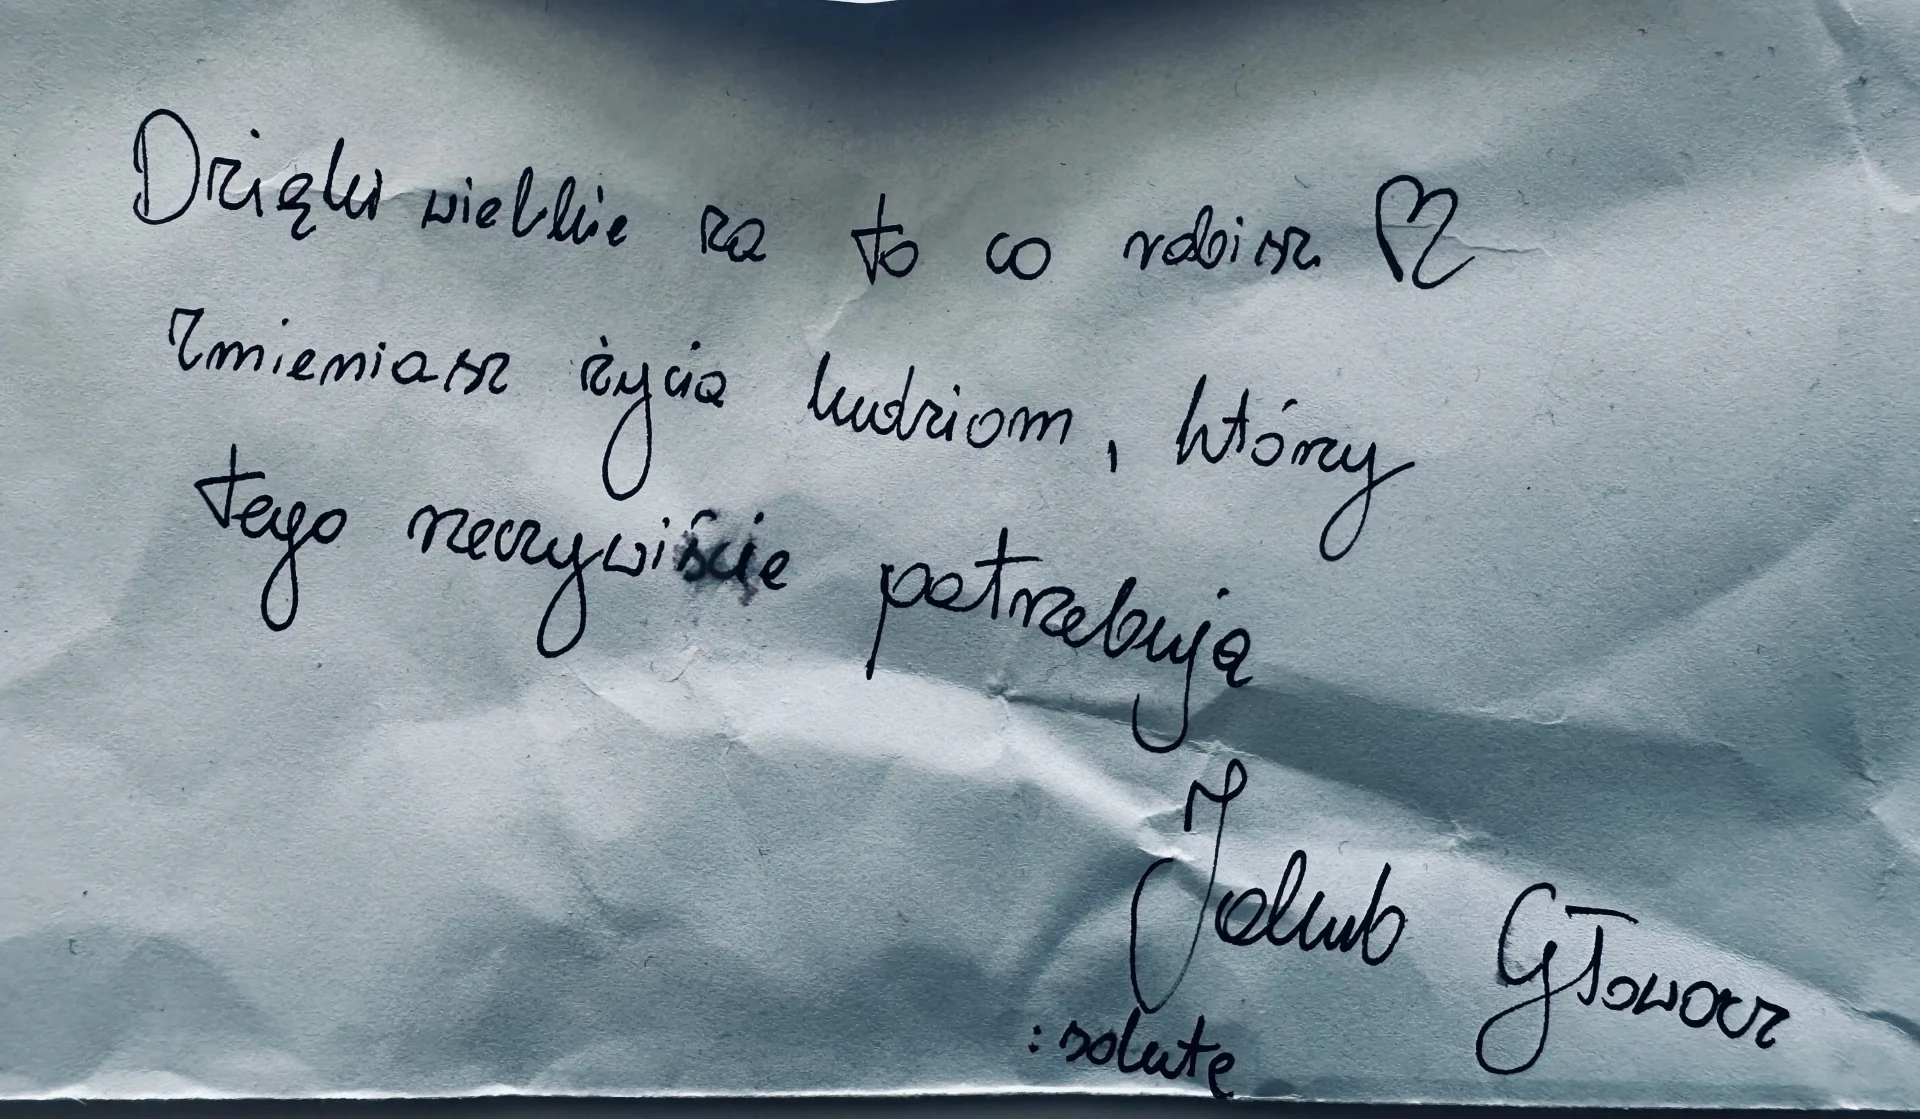 Dzięki wielkie za to co robisz ♡
Zmieniasz życia ludziom, którzy
tego rzeczywiście potrzebują
Jakub Głowacz
:salute